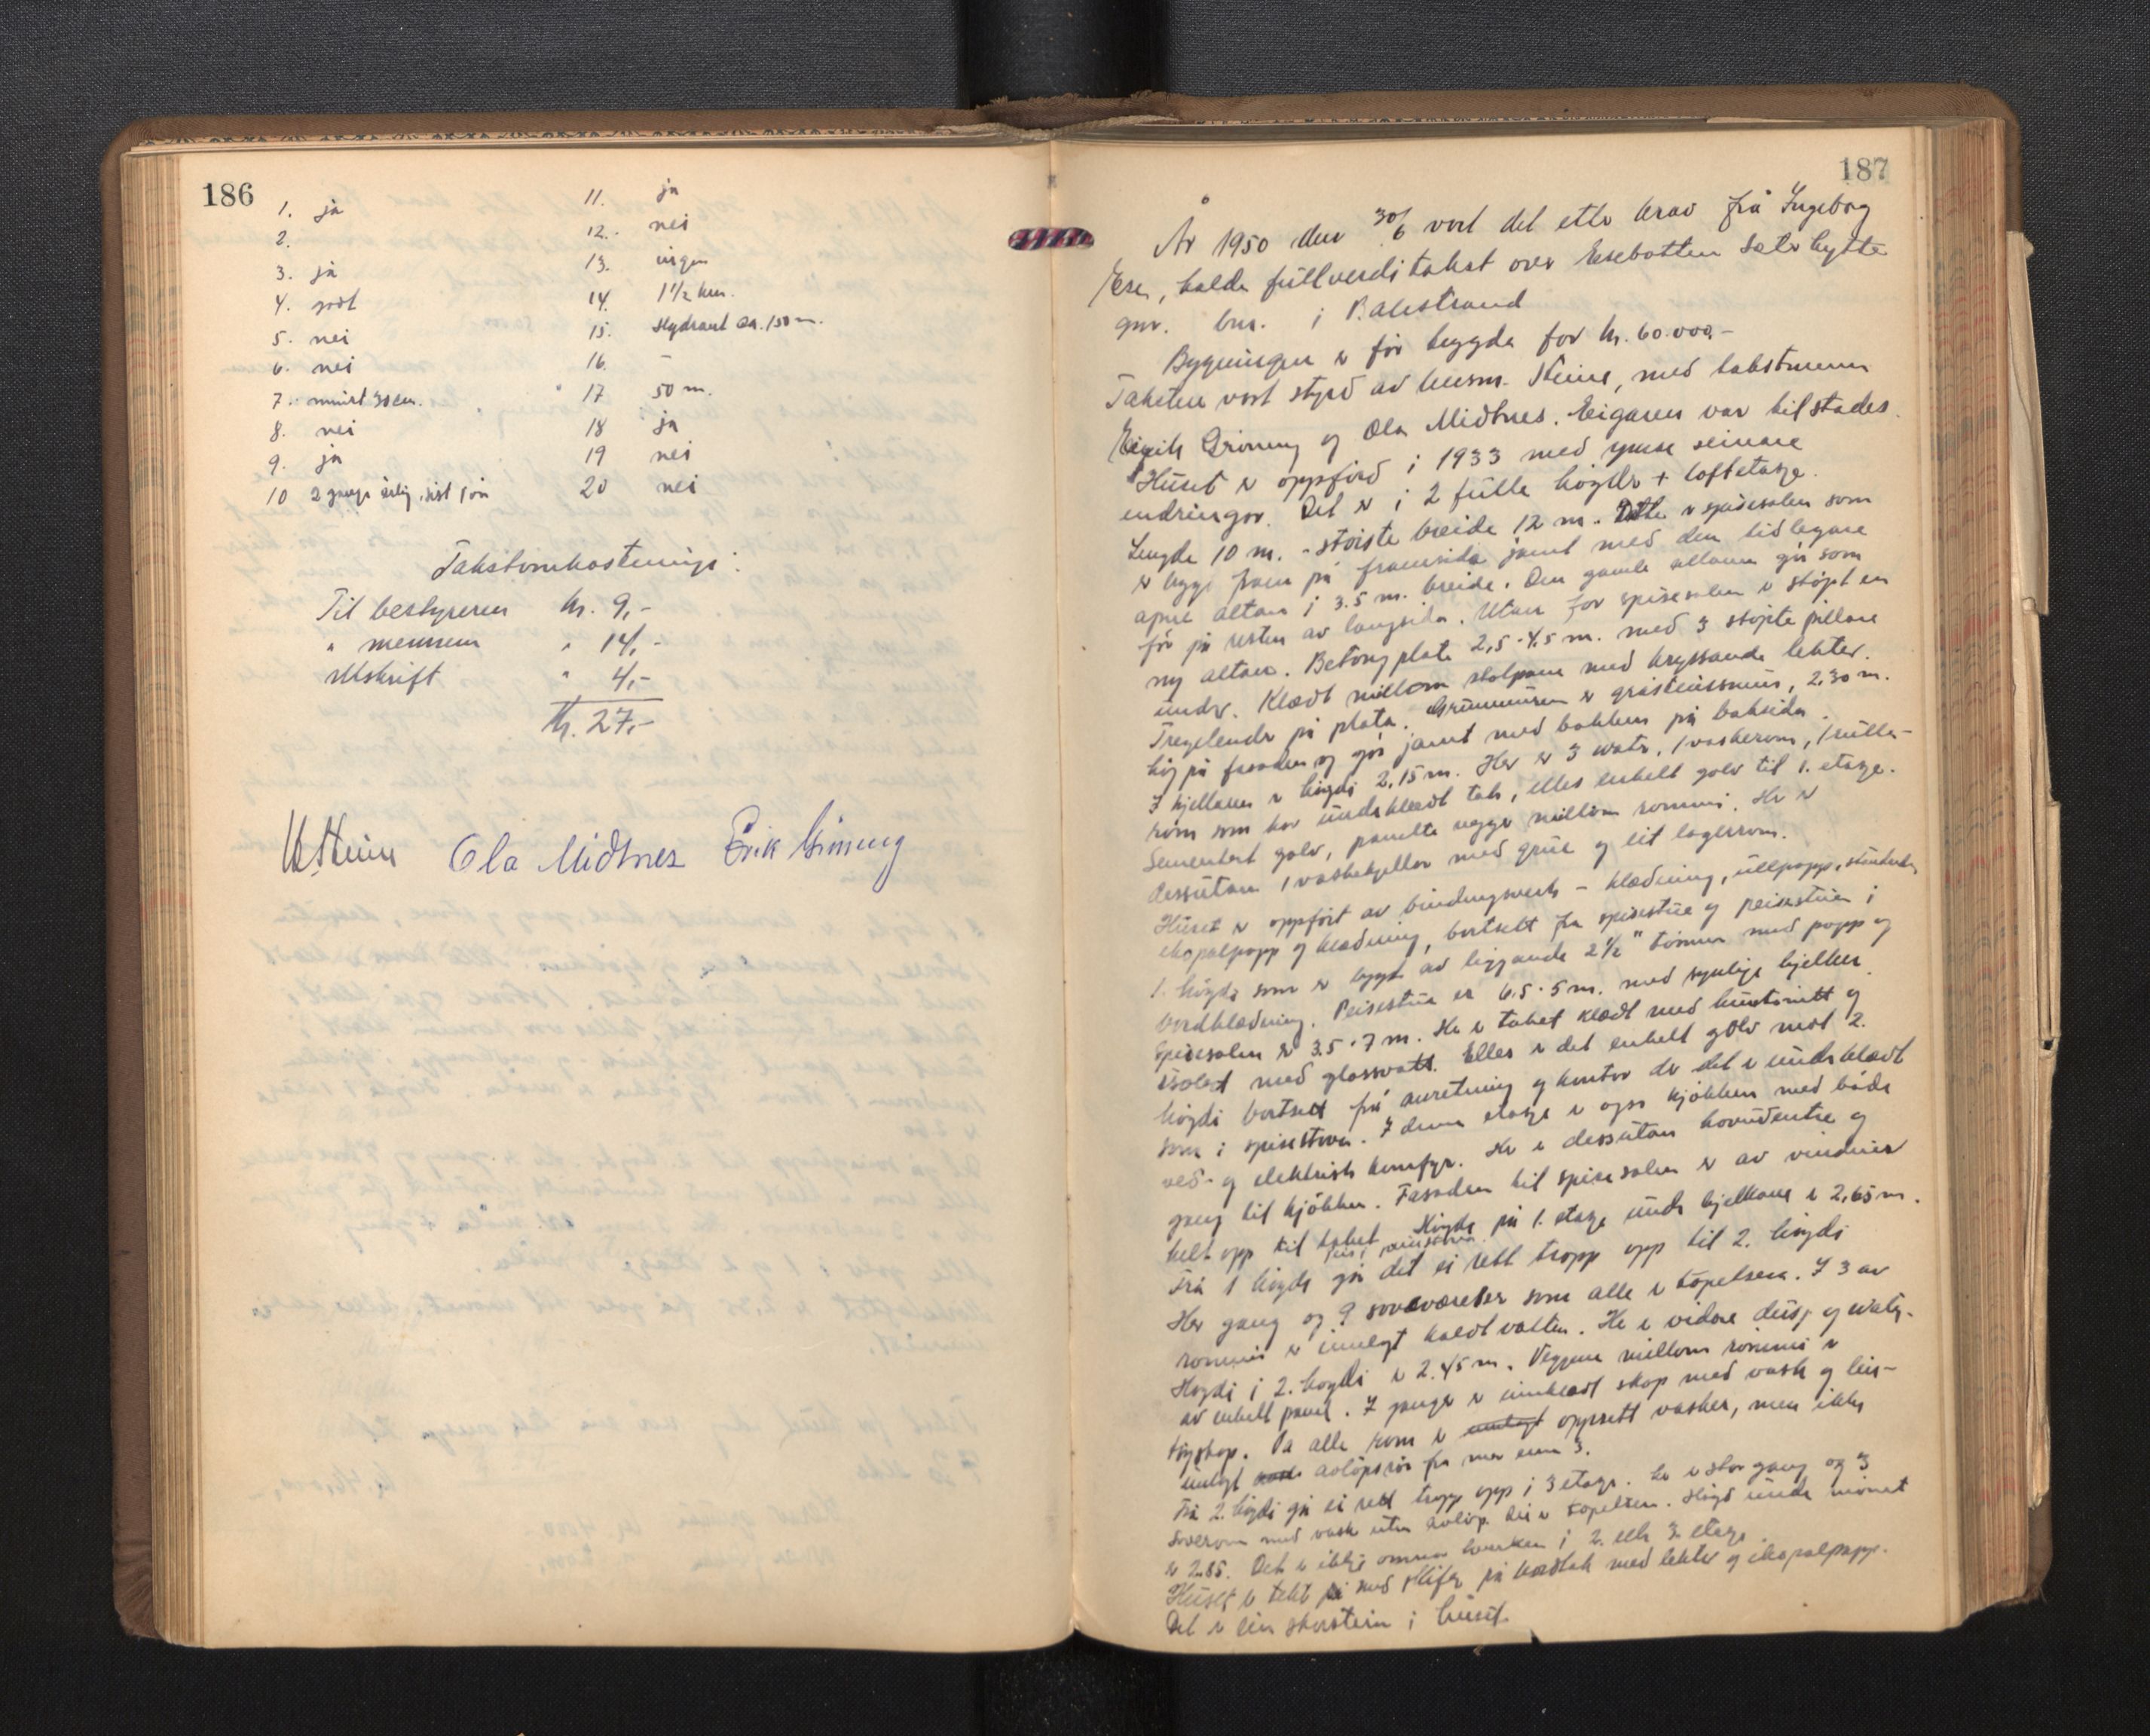 186
1. ja
2.
3. ja
4. godt
5. nei
6. nei
7. minst 30 cm.
8. nei
9. ja
10 2 gange årlig, sist i år
11. ja
12. nei
13. ingen
14. 1½ km.
15. Hydrant ca. 150 m.
16. –
17 50 m.
18 ja
19 nei
20 nei
Takstomkostninger:
Til bestyreren kr. 9,-
" mennene " 14,-
Utskrift " 4,-
Kr. 27,-
Ola Midtnes Erik Grinning
187
År 1950 den 30/6 vart det etter krav frå Ingeborg
Ese, halde fullverditakst over Esebotten Sæterhytte
gnr. bnr. i Balestrand
Bygningen er før trygda for kr. 60.000,-
Taksten vart styrd av lensm. Steine, med takstmenn
Eirik Grinning og Ola Midtnes. Eigaren var tilstades.
Huset er oppførd i 1933 med ymse seinare
endringar. Det er i 2 fulle høgder + loftetasje.
Lengde 10 m. - største breide 12 m. Dette er spisesalen som
er bygt fram på framsida jamt med den tidlegare
åpne altan i 3.5 m. breide. Den gamle altanen går som
før på resten av langsida. Utan for spisesalen er støpt en
ny altan. Betongplate 2,5 · 4,5 m. med 3 støpte pillare
under. Klædt millom stolpane med kryssande lekter.
Tregelender på plata. Grunnmuren er gråsteinsmur, 2,30 m.
høg på fasaden og går jamt med bakken på baksida.
I kjellaren er høgdi 2,15 m. Her er 3 watr, 1 vaskerom, 1 rulle-
rom som har underklædt tak, elles enkelt golv til 1. etasje.
Sementert golv, panelte vegger millom rommi. Her er
dessutan 1 vaskekjellar med grue og eit lagerrom.
Huset er oppført av bindingsverk - klædning, ullpapp, stenderar,
ekspalpapp og klædning, bortsett fra spisestue og peisestuen i
1. høgdi som er bygt av liggjande 2½" tømmer med papp og
bordklædning. Peisestua er 6.5 · 5 m. med synlige bjelker.
Spisesalen er 3.5 · 7 m. Her er taket klædt med huntonitt og
isolert med glassvatt. Elles er det enkelt golv mot 2.
høgdi bortsett frå anretning og kontor der det er underklædt
som i spisestova. I denne etasje er også kjøkken med både
ved- og elektrisk komfyr. Her er dessutan hovudentre og
gang til kjøkken. Fasaden til spisesalen er av vinduer
helt opp til taket. Høgde på 1. etasje under bjelkane er 2,65 m.
Frå 1 høgde går det ei rett tropp opp til 2. høgdi
Her gang og 9 soveværelser som alle er tapetsera. I 3 av
rommi er innlagt kaldt vatten. Her er vidare dusj og watr.
Høgdi i 2. høgdi er 2.45 m. Veggene millom rommi er
av enkelt panel. I gange er innklædt skap med vask og lin-
tøyskap. På alle rom er innlagt oppsett vasker, men ikke
innlagt avløpsrør fra mer enn 3.
Frå 2. høgdi går ei rett tropp opp i 3 etasje. Her er stor gang og 3
soverom med vask uten avløp. Dei er tapetsera. Høgd under mønet
er 2.85. Det er ikkje omnar hverken i 2. eller 3. etasje.
Huset er tekt med skifer på bordtak med lekter og ekspalpapp.
Det er ein skorstein i huset.